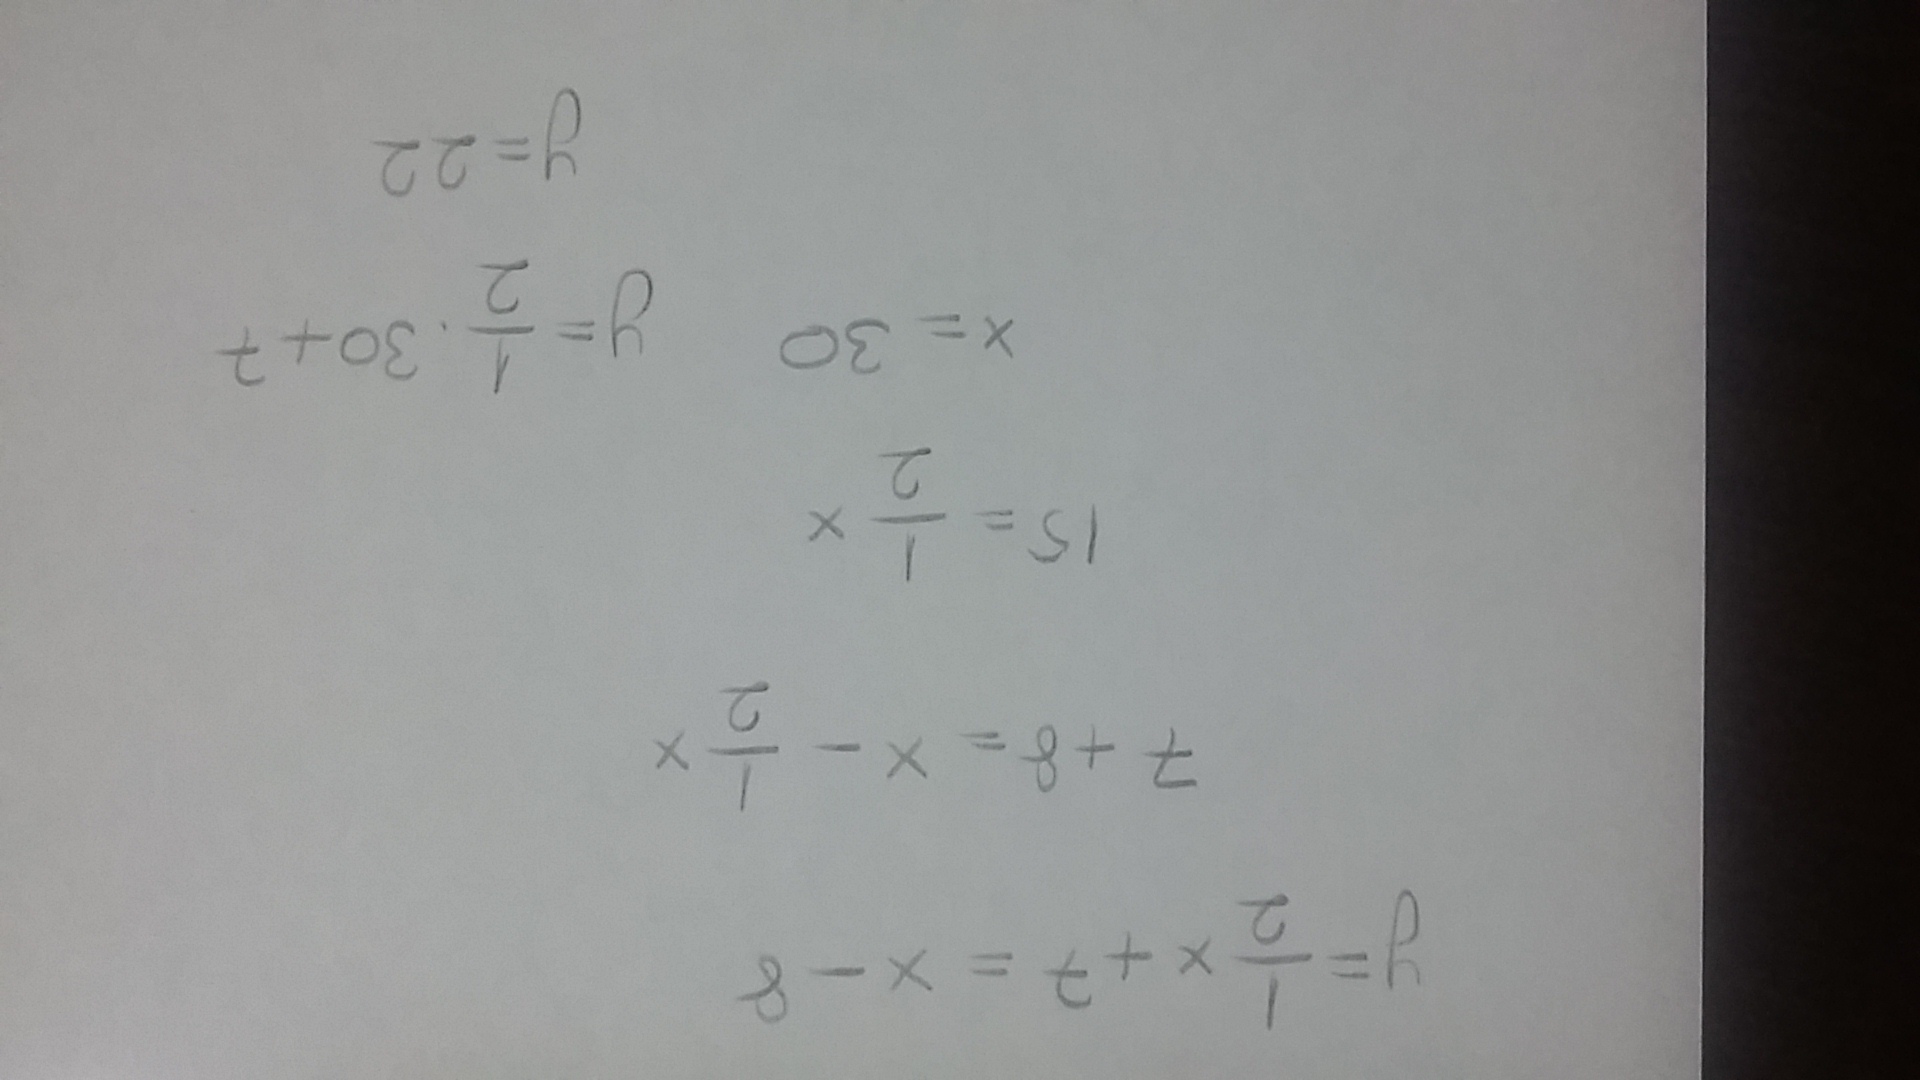 y = 1/2 x + 7 = x - 8
7 + 8 = x - 1/2 x
15 = 1/2 x
x = 30 y = 1/2 · 30 + 7
y = 22